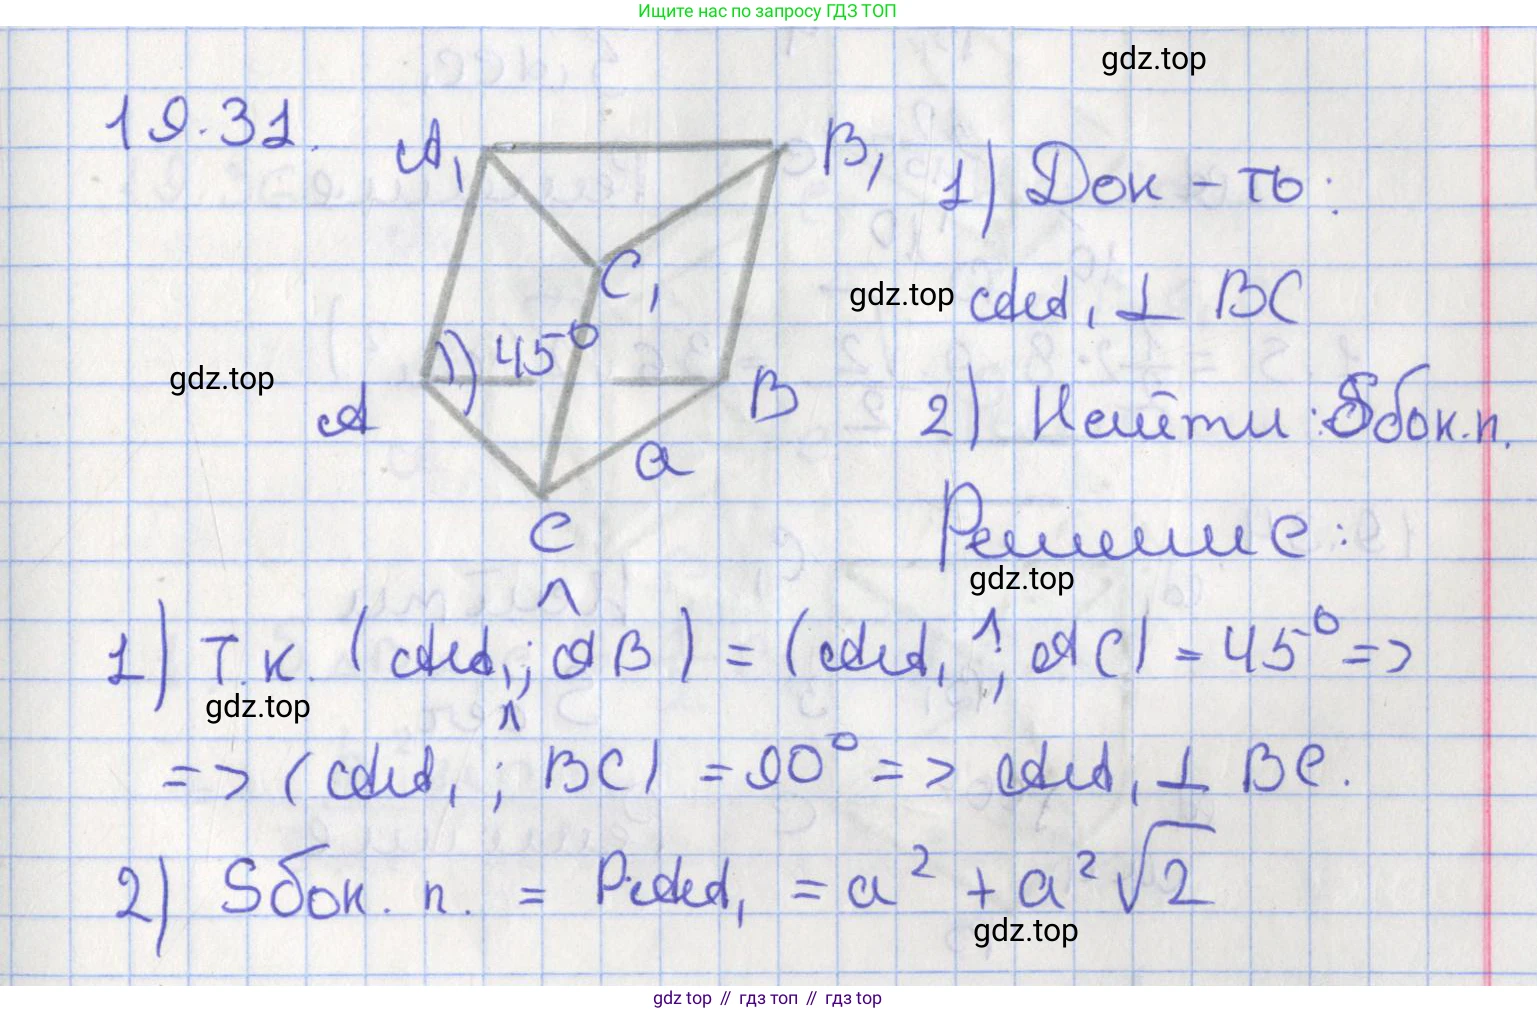 Ищите нас по запросу ГДЗ ТОП
gdz.top
19.31.
A₁
B₁
1) Док-ть:
C₁
gdz.top
AA₁ ⊥ BC
45°
gdz.top
A
B
2) Найти: Sбок.п.
a
C
Решение:
gdz.top
1) Т.к. (AA₁^; AB) = (AA₁^; AC) = 45° =>
gdz.top
=> (AA₁^; BC) = 90° => AA₁ ⊥ BC.
2) Sбок.п. = P·AA₁ = a² + a²√2
gdz.top
gdz top // гдз топ // гдз top